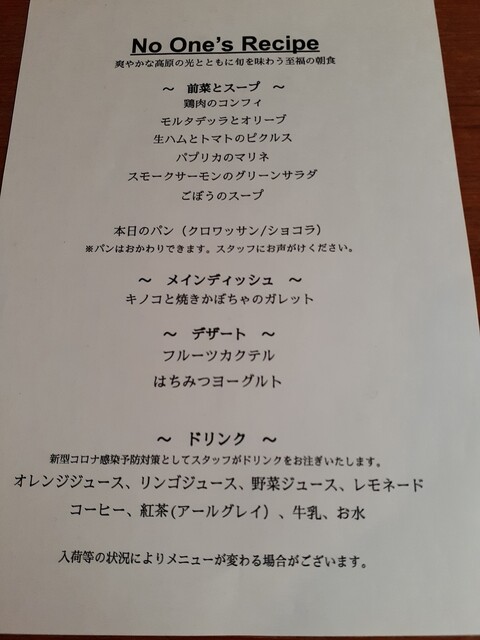 No One's Recipe
爽やかな高原の光とともに旬を味わう至福の朝食
～ 前菜とスープ ～
鶏肉のコンフィ
モルタデッラとオリーブ
生ハムとトマトのピクルス
パプリカのマリネ
スモークサーモンのグリーンサラダ
ごぼうのスープ
本日のパン（クロワッサン/ショコラ）
※パンはおかわりできます。スタッフにお声がけください。
～ メインディッシュ ～
キノコと焼きかぼちゃのガレット
～ デザート ～
フルーツカクテル
はちみつヨーグルト
～ ドリンク ～
新型コロナ感染予防対策としてスタッフがドリンクをお注ぎいたします。
オレンジジュース、リンゴジュース、野菜ジュース、レモネード
コーヒー、紅茶(アールグレイ）、牛乳、お水
入荷等の状況によりメニューが変わる場合がございます。